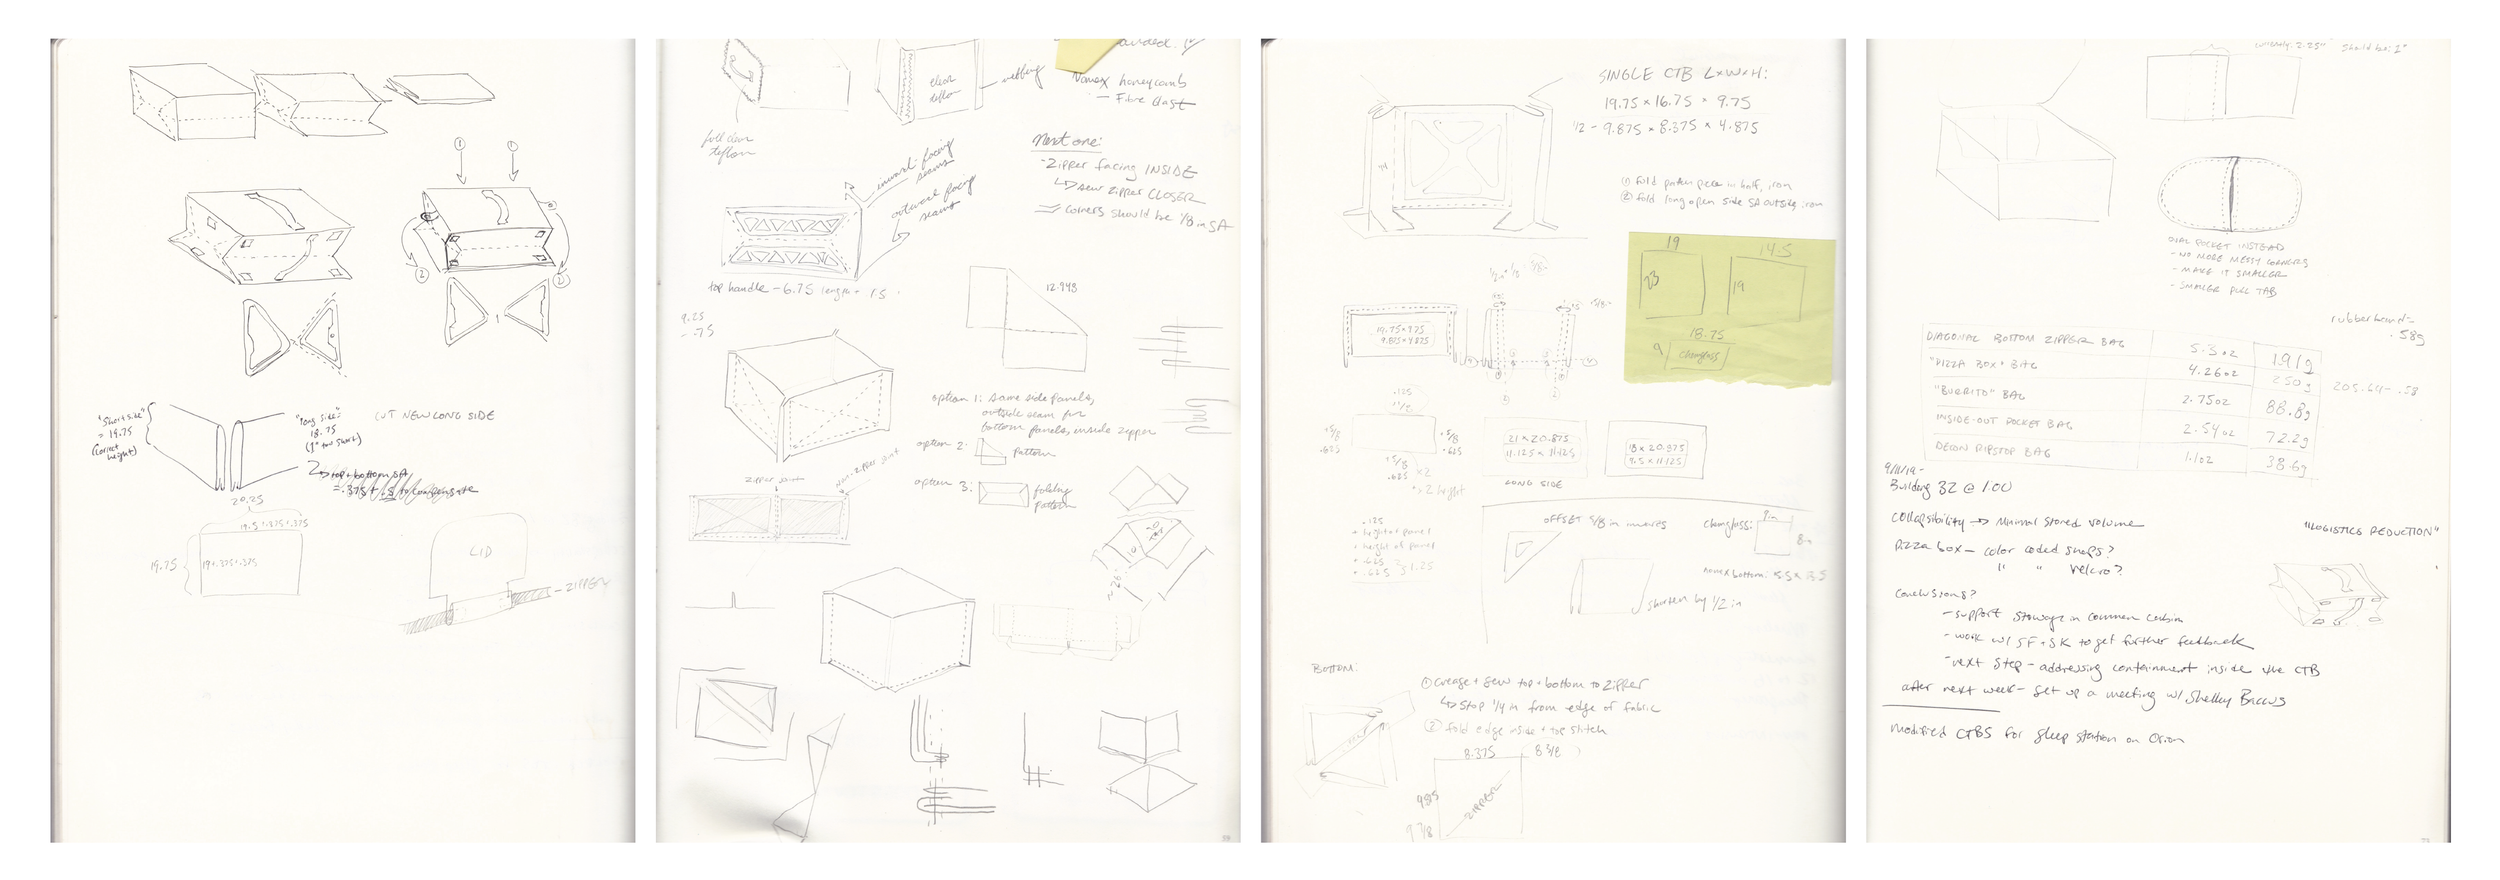 ①
①
②
②
1
"Short side"
= 19.75
(correct
height)
"long side":
18.75
(1" too short)
CUT NEW LONG SIDE
top + bottom SA
= .375 + .5 to compensate
20.25
19.5 + .375 + .375
19.75
19 + .375 + .375
LID
ZIPPER
clear
teflon
webbing
full clear
teflon
Nomex honeycomb
- Fibre Glast
inward-facing
seams
outward facing
seams
Next one:
- Zipper facing INSIDE
↳ sew zipper CLOSER
corners should be 1/8 in SA
top handle - 6.75 length + 1.5
9.25
- .75
12.948
option 1: same side panels,
outside seam for
bottom panels, inside zipper
option 2:
pattern
option 3:
folding
pattern
zipper seam
Non-zipper joint
SINGLE CTB L×W×H:
19.75 × 16.75 × 9.75
1/2 - 9.875 × 8.375 × 4.875
① fold pattern piece in half, iron
② fold long open side SA outside, iron
19
14.5
23
19
18.75
9
Chemglass
19.75 × 9.75
9.875 × 4.875
.125
1/8
+5/8
.625
+5/8
.625
+5/8
.625
×2
×2 height
21 × 20.875
11.125 × 11.125
LONG SIDE
18 × 20.875
9.5 × 11.125
.125
+ height of panel
+ height of panel
+ .625
+ .625
OFFSET 5/8 in inwards
chemglass:
9in
8in
nomex bottom:
shorten by 1/2 in
BOTTOM:
① crease + sew top + bottom to zipper
↳ Stop 1/4 in from edge of fabric
② fold edge inside + top stitch
8.375
8 3/8
9 7/8
ZIPPER
currently: 2.25"
Should be: 2"
OVAL POCKET INSTEAD
- NO MORE MESSY CORNERS
- MAKE IT SMALLER
- SMALLER PULL TAB
rubberband =
.58g
DIAGONAL BOTTOM ZIPPER BAG 5.3oz 191g
"PIZZA BOX" BAG 4.26oz 250g
205.64 - .58
"BURRITO" BAG 2.75oz 88.8g
INSIDE-OUT POCKET BAG 2.54oz 72.2g
DECON RIPSTOP BAG 1.1oz 38.6g
9/11/19 -
Building 32 @ 1:00
Collapsibility → Minimal stored volume
"LOGISTICS REDUCTION"
Pizza box - color coded snaps?
" " velcro?
Conclusions?
- support stowage in common cabin
- work w/ SF + SK to get further feedback
- next step - addressing containment inside the CTB
after next week - set up a meeting w/ Shelley
Modified CTBS for sleep station on Orion